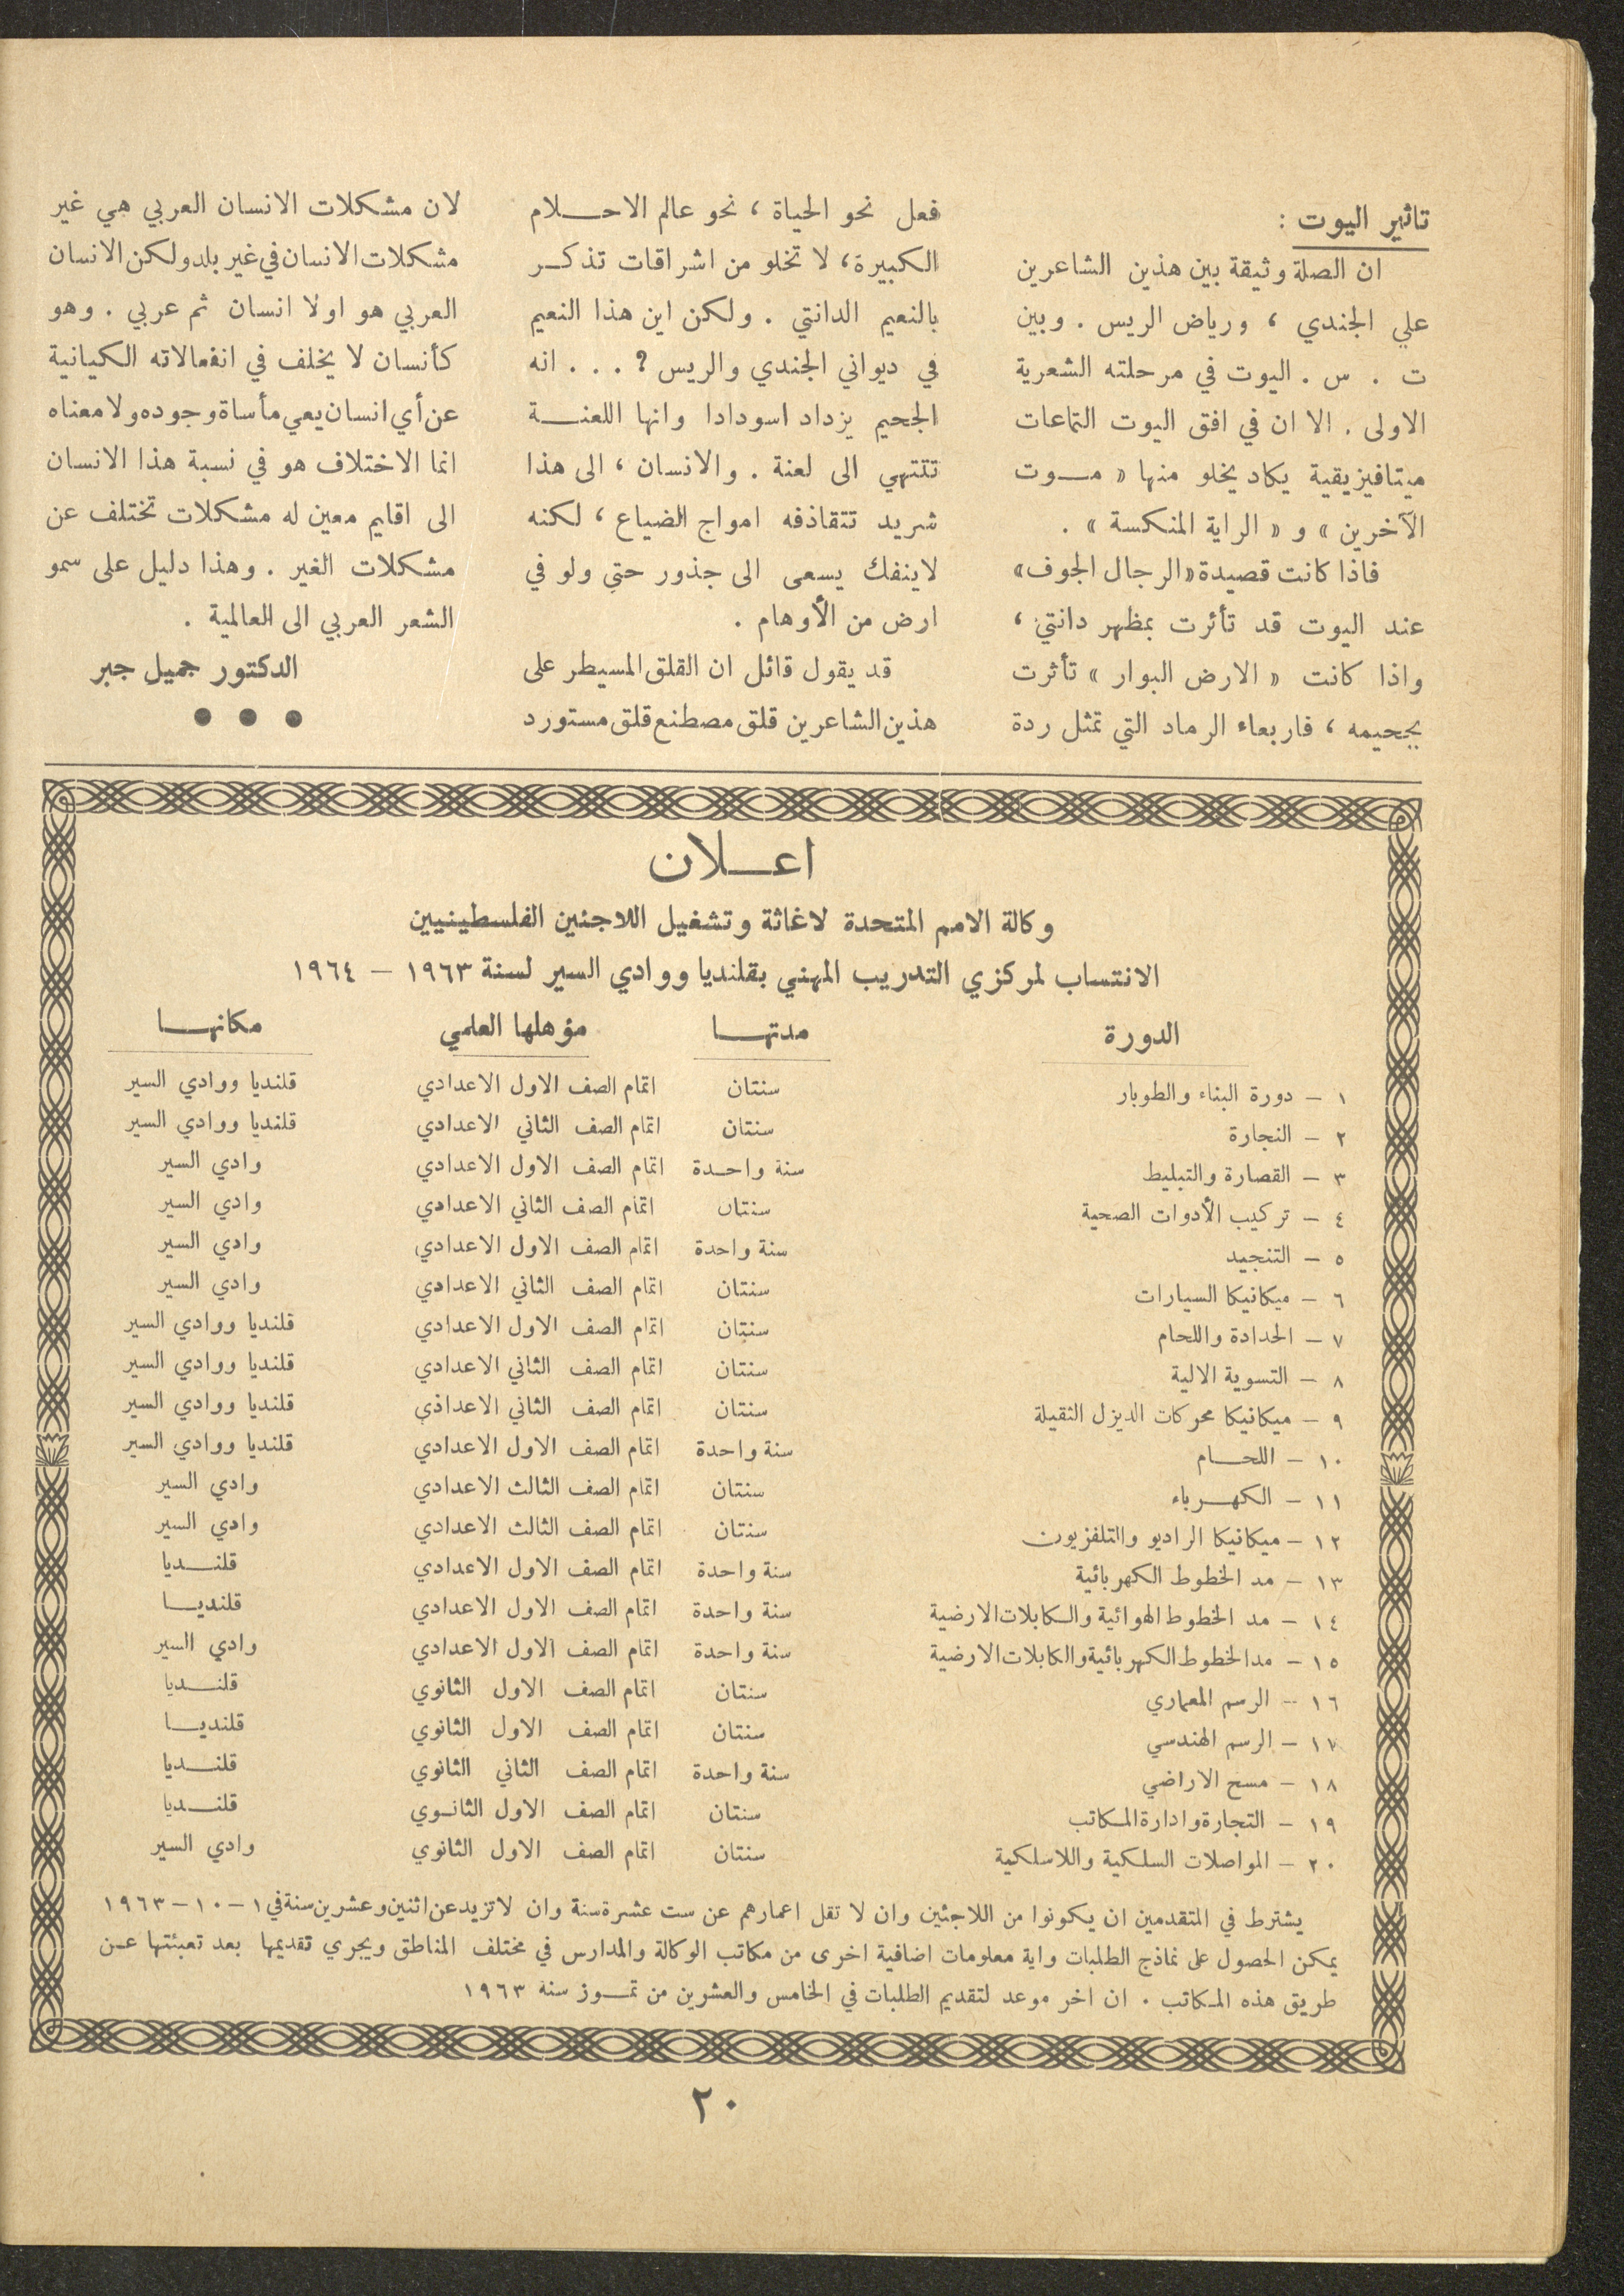 تاثير اليوت :
ان الصلة وثيقة بين هذين الشاعرين
علي الجندي ، ورياض الريس . وبين
ت . س . اليوت في مرحلته الشعرية
الاولى . الا ان في افق اليوت التماعات
ميتافيزيقية يكاد يخلو منها « مـوت
الآخرين » و « الراية المنكسة » .
فاذا كانت قصيدة «الرجال الجوف»
عند اليوت قد تأثرت بمظهر دانتي ،
واذا كانت « الارض البوار » تأثرت
بجحيمه ، فاربعاء الرماد التي تمثل ردة
فعل نحو الحياة ، نحو عالم الاحـلام
الكبيرة ، لا تخلو من اشراقات تذكـر
بالنعيم الدانتي . ولكن اين هذا النعيم
في ديواني الجندي والريس ؟ . . . انه
الجحيم يزداد اسودادا وانها اللعنـة
تنتهي الى لعنة . والانسان ، الى هذا
شريد تتقاذفه امواج الضياع ، لكنه
لاينفك يسعى الى جذور حتي ولو في
ارض من الأوهام .
قد يقول قائل ان القلق المسيطر على
هذين الشاعرين قلق مصطنع قلق مستورد
لان مشكلات الانسان العربي هي غير
مشكلات الانسان في غير بلد ولكن الانسان
العربي هو اولا انسان ثم عربي . وهو
كأنسان لا يخلف في انفعالاته الكيانية
عن أي انسان يعي مأساة وجوده ولا معناه
انما الاختلاف هو في نسبة هذا الانسان
الى اقليم معين له مشكلات تختلف عن
مشكلات الغير . وهذا دليل على سمو
الشعر العربي الى العالمية .
الدكتور جميل جبر
● ● ●
اعـلان
وكالة الامم المتحدة لاغاثة وتشغيل اللاجئين الفلسطينيين
الانتساب لمركزي التدريب المهني بقلنديا ووادي السير لسنة ١٩٦٣ – ١٩٦٤
الدورة مدتهـا مؤهلها العلمي مكانهـا
١ – دورة البناء والطوبار سنتان اتمام الصف الاول الاعدادي قلنديا ووادي السير
٢ – النجارة سنتان اتمام الصف الثاني الاعدادي قلنديا ووادي السير
٣ – القصارة والتبليط سنة واحـدة اتمام الصف الاول الاعدادي وادي السير
٤ – تركيب الأدوات الصحية سنتان اتمام الصف الثاني الاعدادي وادي السير
٥ – التنجيد سنة واحدة اتمام الصف الاول الاعدادي وادي السير
٦ – ميكانيكا السيارات سنتان اتمام الصف الثاني الاعدادي وادي السير
٧ – الحدادة واللحام سنتان اتمام الصف الاول الاعدادي قلنديا ووادي السير
٨ – التسوية الالية سنتان اتمام الصف الثاني الاعدادي قلنديا ووادي السير
٩ – ميكانيكا محركات الديزل الثقيلة سنتان اتمام الصف الثاني الاعدادي قلنديا ووادي السير
١٠ – اللحـام سنة واحدة اتمام الصف الاول الاعدادي قلنديا ووادي السير
١١ – الكهـرباء سنتان اتمام الصف الثالث الاعدادي وادي السير
١٢ – ميكانيكا الراديو والتلفزيون سنتان اتمام الصف الثالث الاعدادي وادي السير
١٣ – مد الخطوط الكهربائية سنة واحدة اتمام الصف الاول الاعدادي قلنـديا
١٤ – مد الخطوط الهوائية والكابلات الارضية سنة واحدة اتمام الصف الاول الاعدادي قلنديـا
١٥ – مد الخطوط الكهربائية والكابلات الارضية سنة واحدة اتمام الصف الاول الاعدادي وادي السير
١٦ – الرسم المعماري سنتان اتمام الصف الاول الثانوي قلنـديا
١٧ – الرسم الهندسي سنتان اتمام الصف الاول الثانوي قلنديـا
١٨ – مسح الاراضي سنة واحدة اتمام الصف الثاني الثانوي قلنـديا
١٩ – التجارة وادارة المكاتب سنتان اتمام الصف الاول الثانـوي قلنـديا
٢٠ – المواصلات السلكية واللاسلكية سنتان اتمام الصف الاول الثانوي وادي السير
يشترط في المتقدمين ان يكونوا من اللاجئين وان لا تقل اعمارهم عن ست عشرة سنة وان لا تزيد عن اثنين وعشرين سنة في ١ – ١٠ – ١٩٦٣
يمكن الحصول على نماذج الطلبات واية معلومات اضافية اخرى من مكاتب الوكالة والمدارس في مختلف المناطق ويجري تقديمها بعد تعبئتها عـن
طريق هذه المكاتب . ان اخر موعد لتقديم الطلبات في الخامس والعشرين من تمـوز سنة ١٩٦٣
٢٠